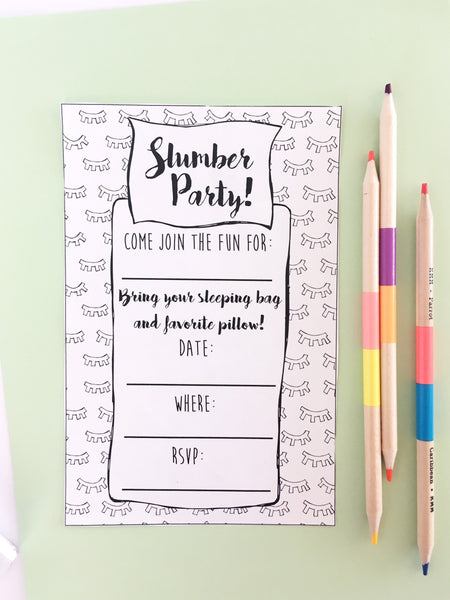 Slumber
Party!
COME JOIN THE FUN FOR:
Bring your sleeping bag
and favorite pillow!
DATE:
WHERE:
RSVP:
KKM • Parrot
Caribbean • KKM